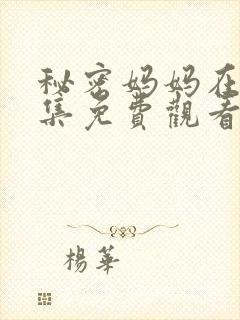 秘密妈妈在
集免費觀看
楊華